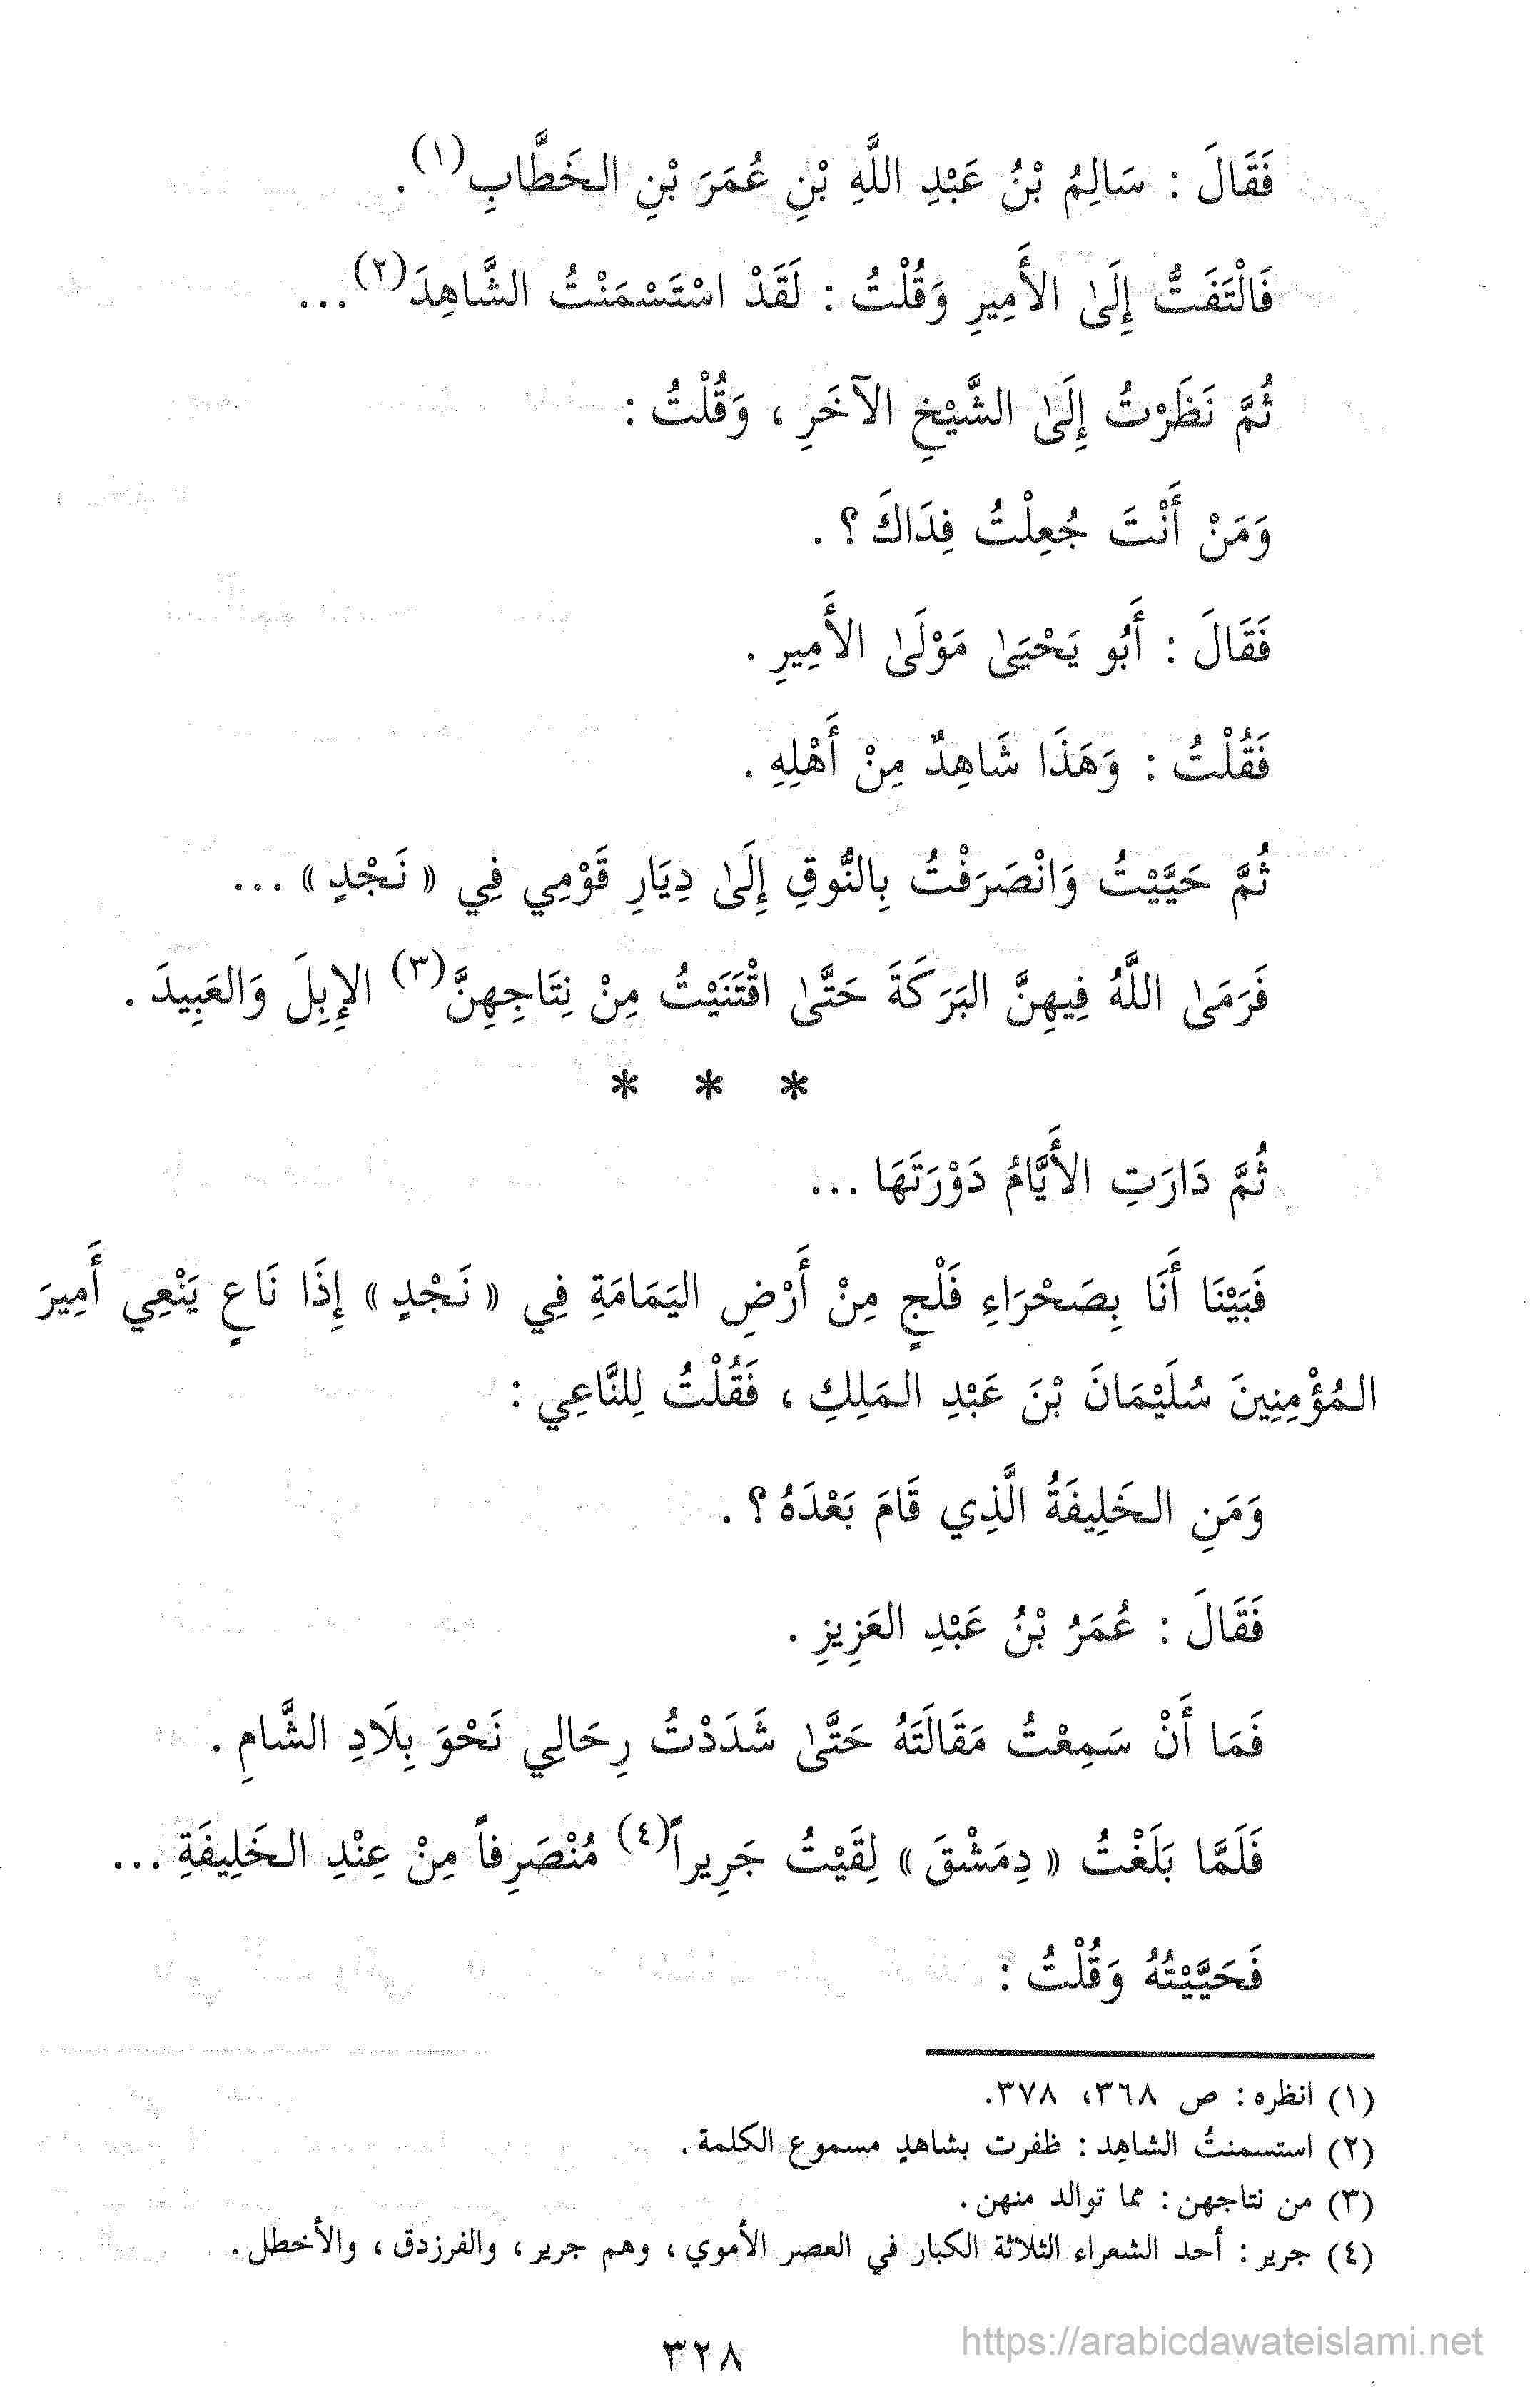 فَقَالَ : سَالِمُ بْنُ عَبْدِ اللَّهِ بْنِ عُمَرَ بْنِ الخَطَّابِ(١).
فَالْتَفَتُّ إِلَىٰ الأَمِيرِ وَقُلْتُ : لَقَدْ اسْتَسْمَنْتُ الشَّاهِدَ(٢)...
ثُمَّ نَظَرْتُ إِلَىٰ الشَّيْخِ الآخَرِ ، وَقُلْتُ :
وَمَنْ أَنْتَ جُعِلْتُ فِدَاكَ ؟ .
فَقَالَ : أَبُو يَحْيَىٰ مَوْلَىٰ الأَمِيرِ .
فَقُلْتُ : وَهَذَا شَاهِدٌ مِنْ أَهْلِهِ .
ثُمَّ حَيَّيْتُ وَانْصَرَفْتُ بِالنُّوقِ إِلَىٰ دِيَارِ قَوْمِي فِي « نَجْدٍ » ...
فَرَمَىٰ اللَّهُ فِيهِنَّ البَرَكَةَ حَتَّىٰ اقْتَنَيْتُ مِنْ نِتَاجِهِنَّ(٣) الإِبِلَ وَالعَبِيدَ .
* * *
ثُمَّ دَارَتِ الأَيَّامُ دَوْرَتَهَا ...
فَبَيْنَا أَنَا بِصَحْرَاءِ فَلْجٍ مِنْ أَرْضِ اليَمَامَةِ فِي « نَجْدٍ » إِذَا نَاعٍ يَنْعِي أَمِيرَ
المُؤْمِنِينَ سُلَيْمَانَ بْنَ عَبْدِ المَلِكِ ، فَقُلْتُ لِلنَّاعِي :
وَمَنِ الخَلِيفَةُ الَّذِي قَامَ بَعْدَهُ ؟ .
فَقَالَ : عُمَرُ بْنُ عَبْدِ العَزِيزِ .
فَمَا أَنْ سَمِعْتُ مَقَالَتَهُ حَتَّىٰ شَدَدْتُ رِحَالِي نَحْوَ بِلَادِ الشَّامِ .
فَلَمَّا بَلَغْتُ « دِمَشْقَ » لِقَيْتُ جَرِيراً(٤) مُنْصَرِفاً مِنْ عِنْدِ الخَلِيفَةِ ...
فَحَيَّيْتُهُ وَقُلْتُ :
(١) انظره : ص ٣٦٨، ٣٧٨.
(٢) استسمنتُ الشاهِد : ظفرت بشاهدٍ مسموع الكلمة .
(٣) من نتاجهن : مما توالد منهن .
(٤) جرير : أحد الشعراء الثلاثة الكبار في العصر الأموي ، وهم جرير ، والفرزدق ، والأخطل .
٣٢٨
https://arabicdawateislami.net